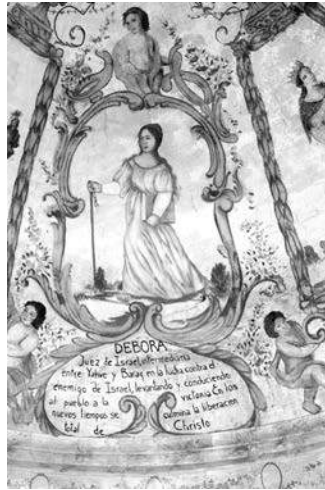 DEBORA
Juez de Israel, intermediaria
entre Yahve y Baraq en la lucha contra el
enemigo de Israel, levantando y conduciendo
al pueblo a la victoria En los
nuevos tiempos se culmina la liberacion
total de Christo